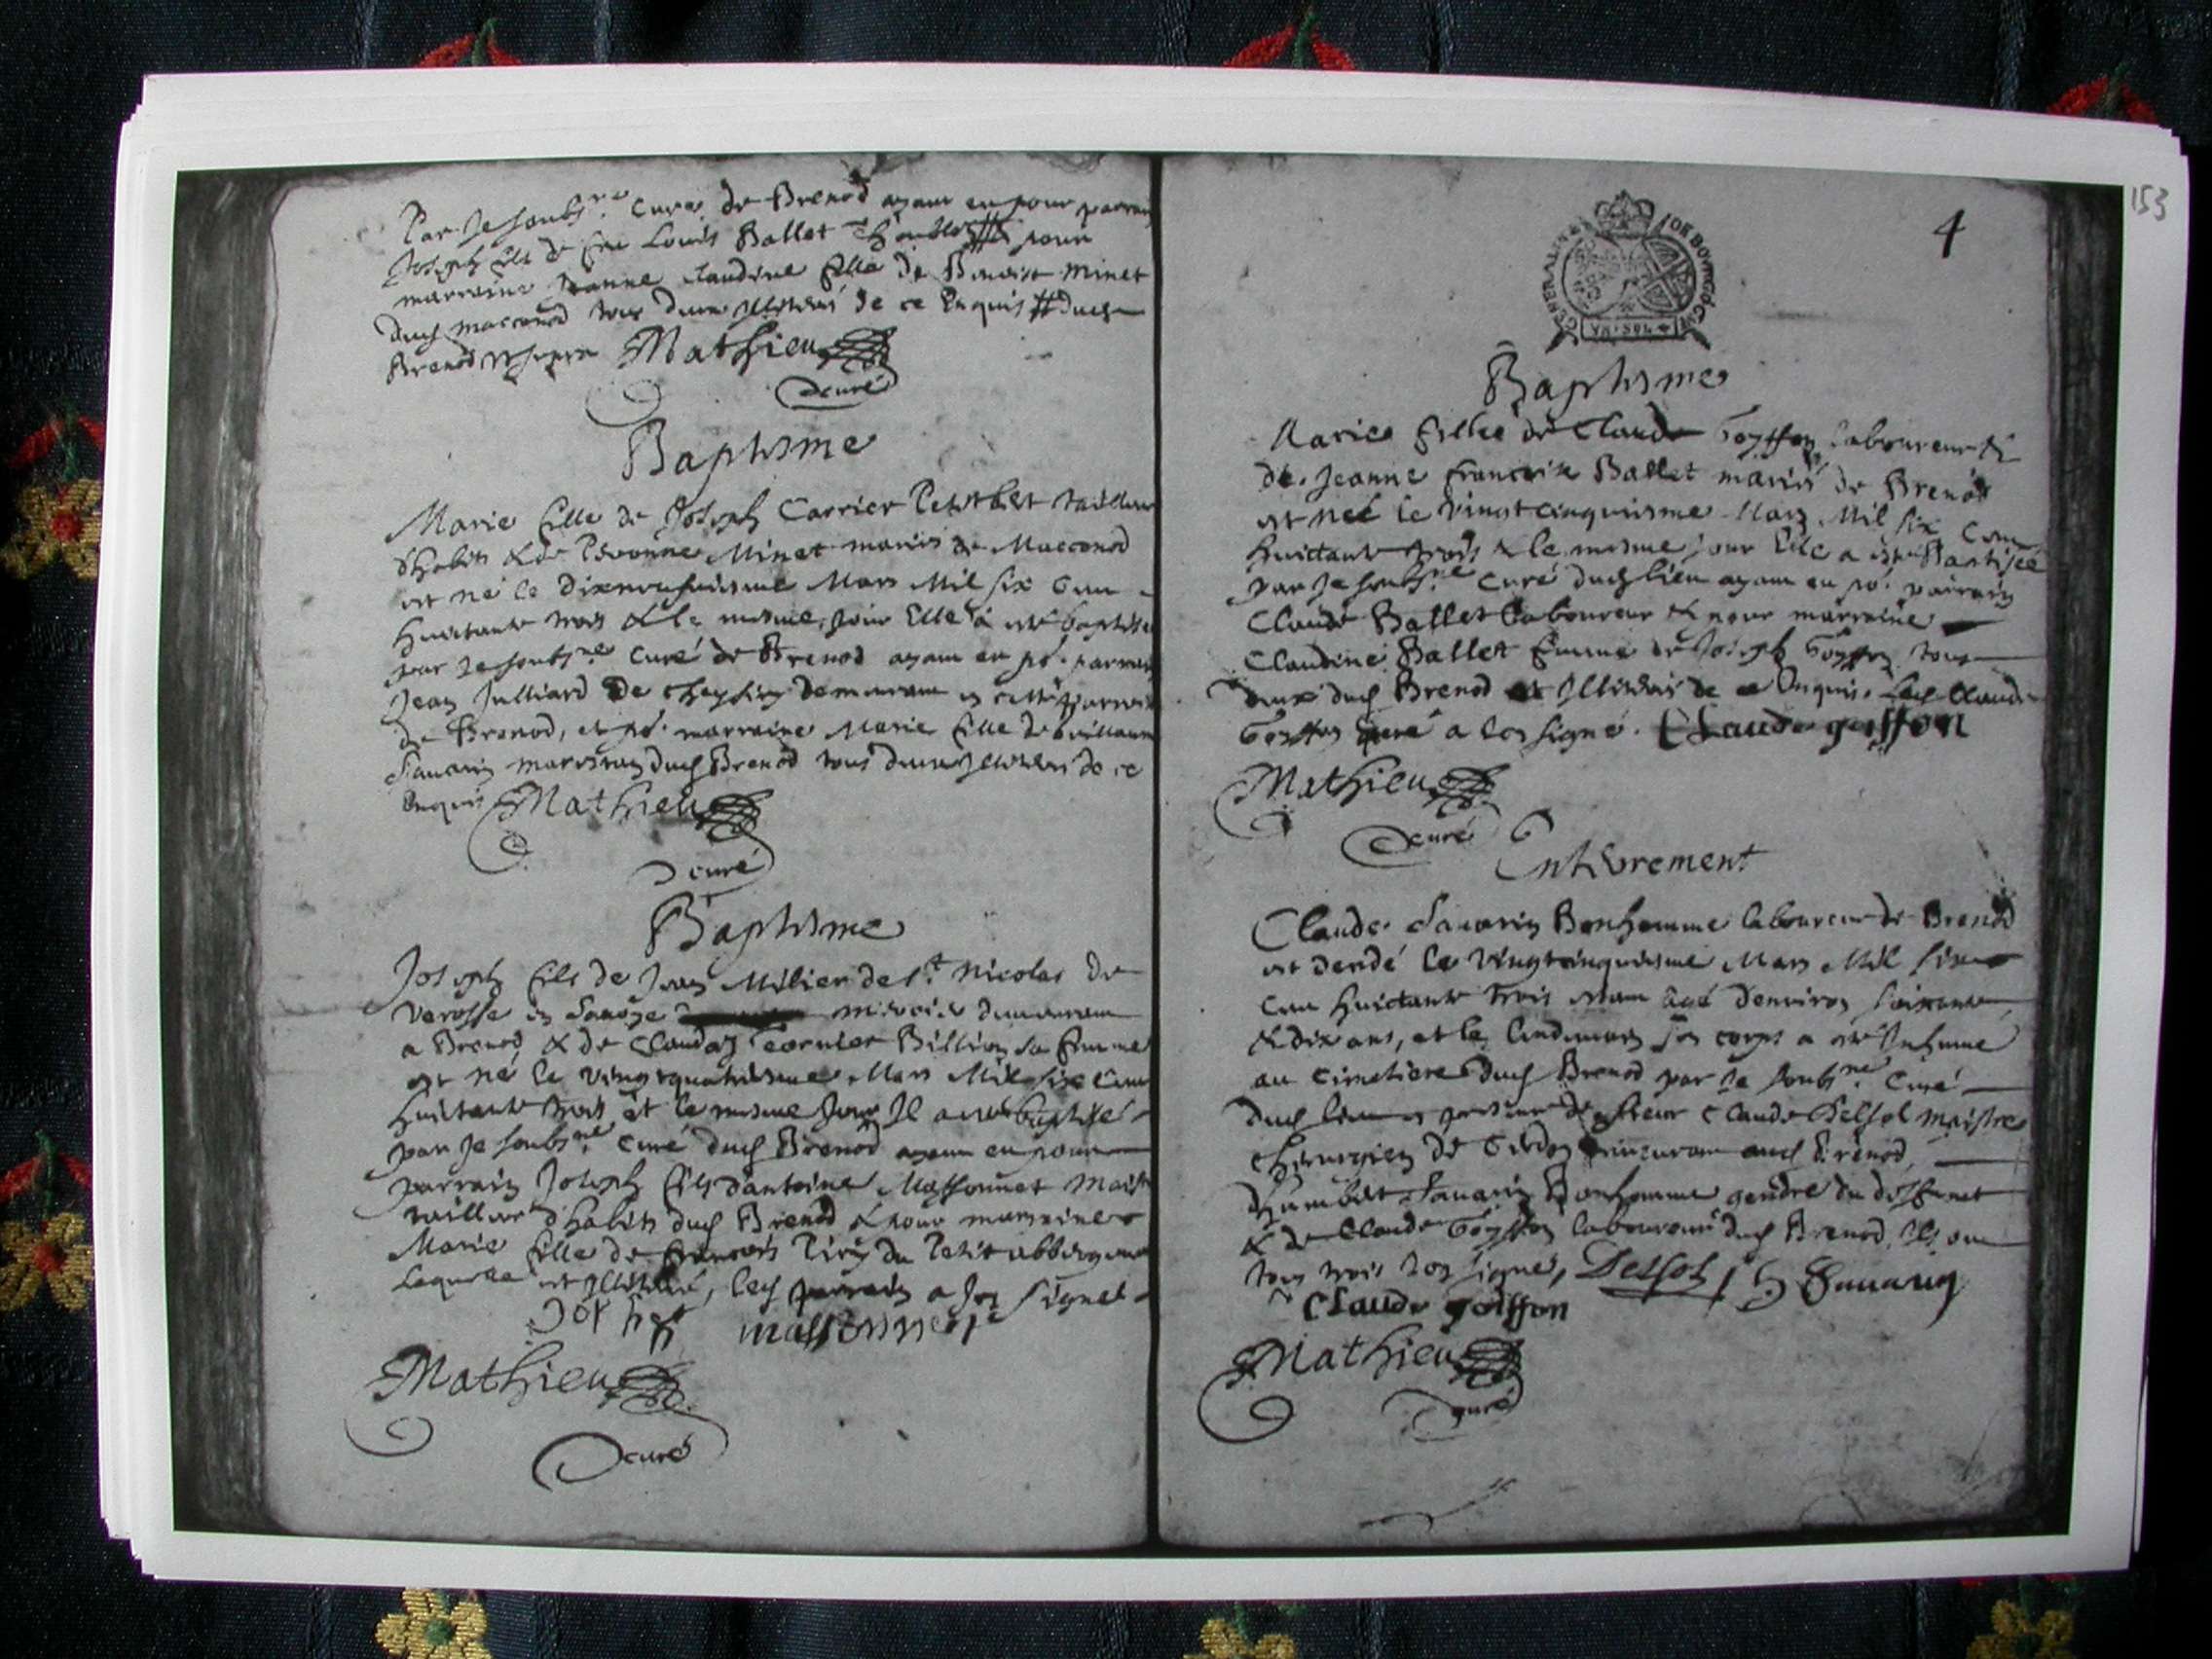 Par Je soubs.né Curé de Brenod ayant eu pour parrain
Joseph fils de feu Louis Ballet & pour
marraine Jeanne Claudine fille de Benoist Minet
duch Macconod tous deux Illitérés de ce Enquis # duch
Brenod Mathieu
curé
Baptisme
Marie fille de Joseph Carrier Petitbet tailleur
d'habits & de Pernonne Minet mariés de Macconod
est né le Dixneufuiesme Mars Mil six Cent
huictante trois & le mesme jour Elle a esté baptisée
par Je soubs.né Curé de Brenod ayant eu po.r parrain
Jean Julliard de demeurant en cette parroisse
de Brenod, et po.r marraine Marie fille de Guillaume
Sauarin duch Brenod tous deux Illitérés de ce
Enquis Mathieu
curé
Baptisme
Joseph fils de Jean Milier de S.t Nicolas de
Verosse en Sauoye demeurant
a Brenod & de Clauda Billion sa femme
est né le vingtquatriesme Mars Mil six Cent
huictante trois et le mesme Jour Il a esté baptisé
par Je soubs.né Curé duch Brenod ayant eu pour
parrain Joseph fils d'antoine Massonnet Maistre
tailleur d'habits duch Brenod & pour marraine
Marie fille de francois du Petit abbergement
Laquelle est Illitérée, lech parrain a signé
massonnet
Mathieu
curé
153
4
GENERALITE DE BOVRGOGNE
VN SOL
Baptisme
Marie fille de Claude Goyffon laboureur &
de Jeanne francoise Ballet mariés de Brenod
est née le vingtcinquiesme Mars Mil six Cent
huictante trois & le mesme jour Elle a esté Baptisée
par Je soubs.né Curé duch lieu ayant eu po.r parrain
Claude Ballet laboureur & pour marraine
Claudine Ballet femme de Joseph Goyffon tous
deux duch Brenod et Illitérés de ce Enquis. Lech Claude
Goyffon a signé. Claude goiffon
Mathieu
curé
Enterrement
Claude Sauarin Bonhomme laboureur de Brenod
est decedé le vingtcinquiesme Mars Mil six
Cent huictante trois estant agé d'enuiron soixante
& dix ans, et le lendemain son corps a esté Inhumé
au cimetiere duch Brenod par Je soubs.né Curé
duch lieu en presence de sieur Claude Delsol maistre
chirurgien de demeurant auch Brenod,
d'humbert Sauarin Bonhomme gendre du deffunct
& de Claude Goyffon laboureur duch Brenod Ils ont
tous trois signé, Delsol h Sauarin
Claude goiffon
Mathieu
curé